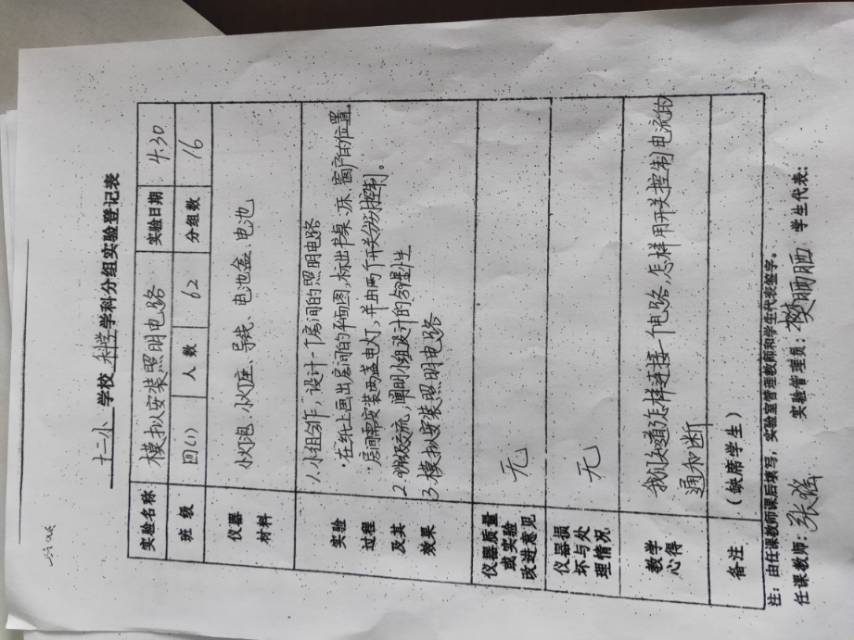 十二小 学校 科学 学科分组实验登记表
实验名称 模拟安装照明电路 实验日期 4.30
班 级 四(1) 人 数 62 分组数 16
仪器
材料
小灯泡、小灯座、导线、电池盒、电池
实验
过程
及其
效果
1.小组合作,设计一个房间的照明电路
·在纸上画出房间的平面图,标出书桌、床、窗户的位置。
·房间需安装两盏电灯,并由两个开关分别控制。
2.小组交流,阐明小组设计的合理性
3.模拟安装照明电路
仪器质量
或实验
改进意见
无
仪器损
坏与处
理情况
无
教学
心得
我们知道了怎样连接一个电路,怎样用开关控制电流的
通和断
备注 (缺席学生)
注:由任课教师课后填写,实验室管理教师和学生代表签字。
任课教师: 张 实验管理员: 学生代表: